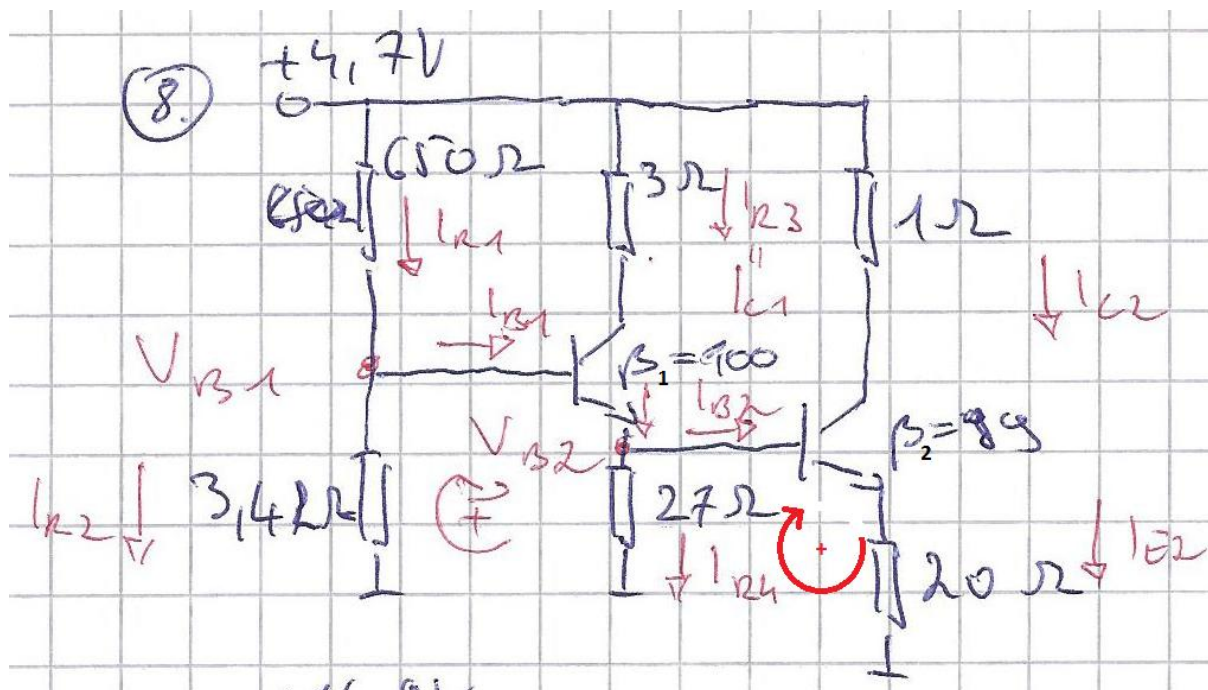 8.
+4,7V
650Ω
3Ω
1Ω
I_R1
I_R3
"
I_C1
I_C2
I_B1
V_B1
β_1=100
I_B2
V_B2
β_2=99
I_R2
3,4kΩ
+
27Ω
+
I_R4
20Ω
I_E2